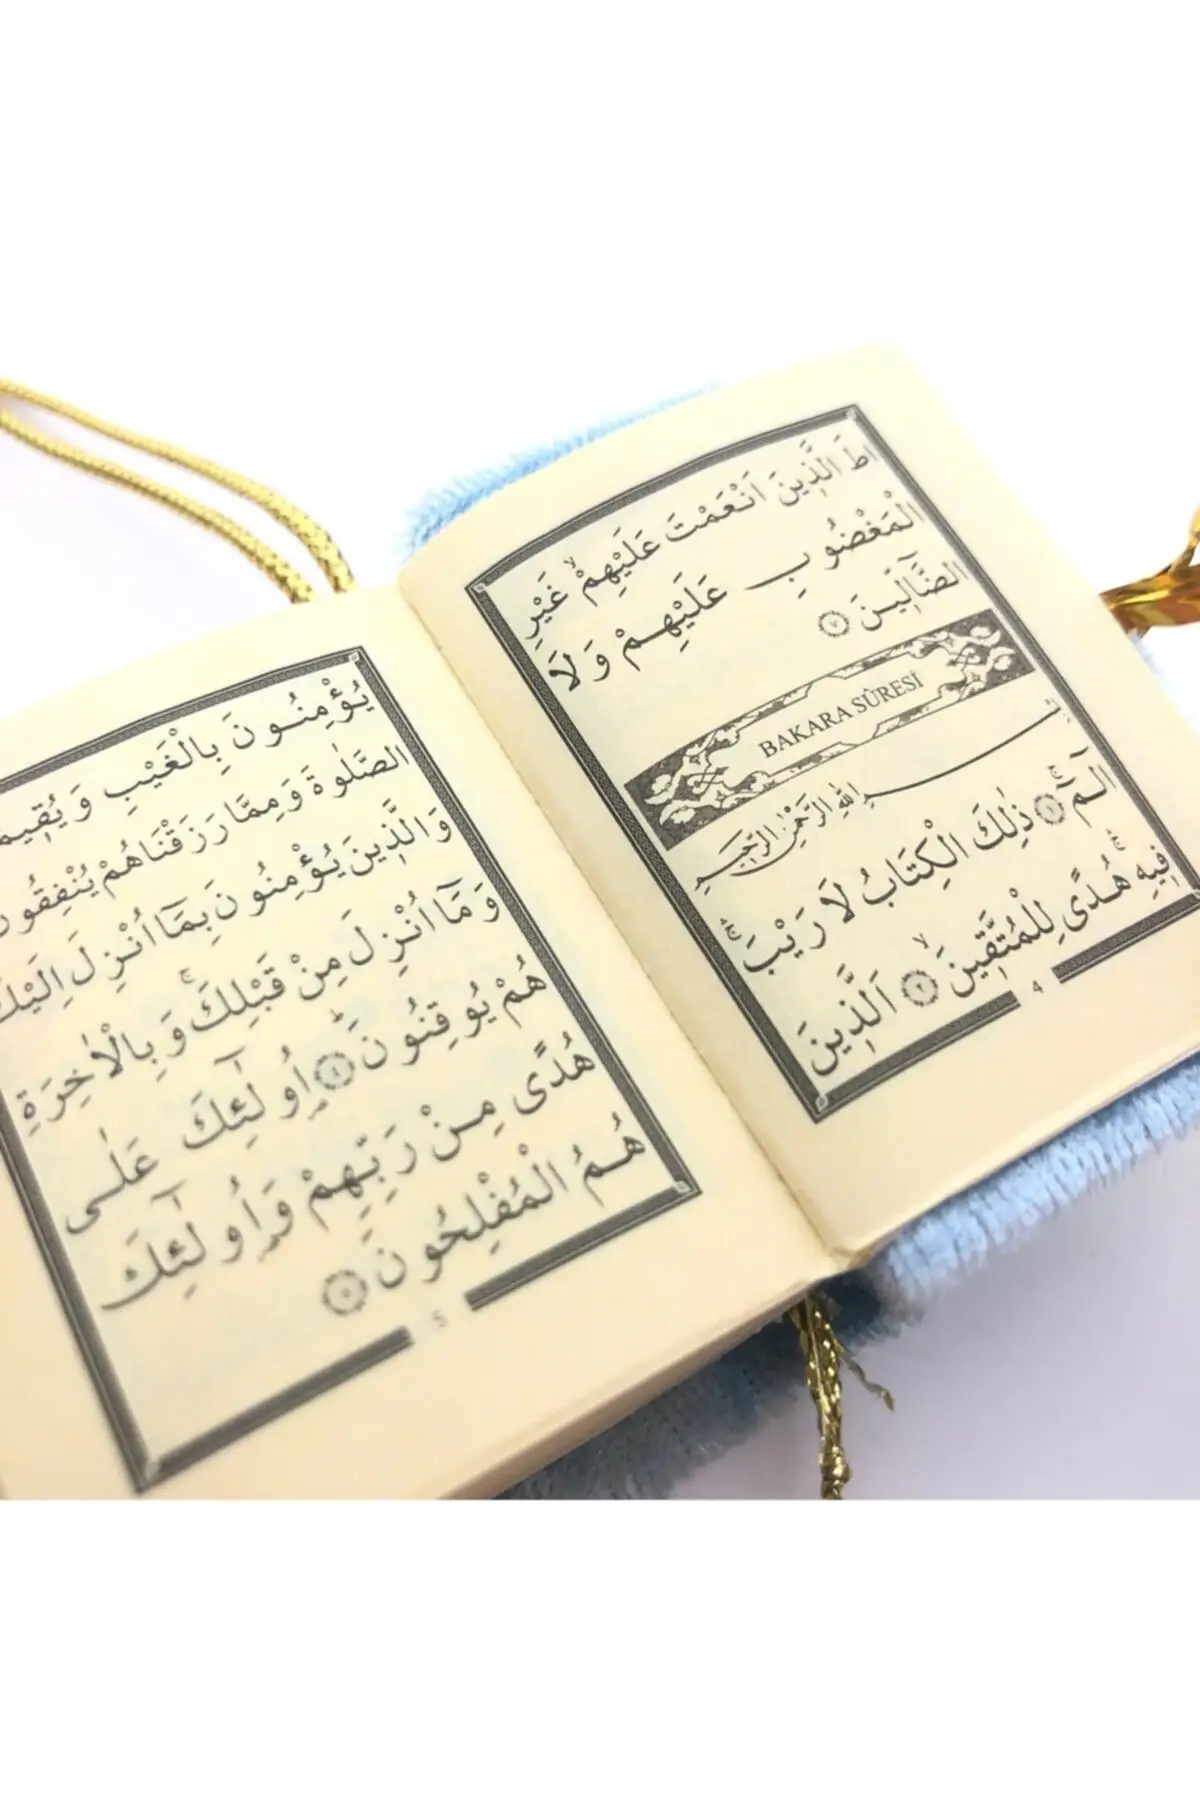 طَ الَّذِينَ اَنْعَمْتَ عَلَيْهِمْۙ غَيْرِ
الْمَغْضُوبِ عَلَيْهِمْ وَلَا
الضَّٓالِّينَ ﴿٧﴾
BAKARA SÛRESİ
بِسْمِ اللّٰهِ الرَّحْمٰنِ الرَّحِيمِ
الٓمٓۚ ﴿١﴾ ذٰلِكَ الْكِتَابُ لَا رَيْبَۚۛ
فِيهِۚۛ هُدًى لِلْمُتَّقِينَۙ ﴿٢﴾ اَلَّذِينَ
4
يُؤْمِنُونَ بِالْغَيْبِ وَيُقِيمُ
الصَّلٰوةَ وَمِمَّا رَزَقْنَاهُمْ يُنْفِقُونَ
وَالَّذِينَ يُؤْمِنُونَ بِمَٓا اُنْزِلَ اِلَيْكَ
وَمَٓا اُنْزِلَ مِنْ قَبْلِكَۚ وَبِالْاٰخِرَةِ
هُمْ يُوقِنُونَۜ ﴿٤﴾ اُو۬لٰٓئِكَ عَلٰى
هُدًى مِنْ رَبِّهِمْ وَاُو۬لٰٓئِكَ
هُمُ الْمُفْلِحُونَ ﴿٥﴾
5